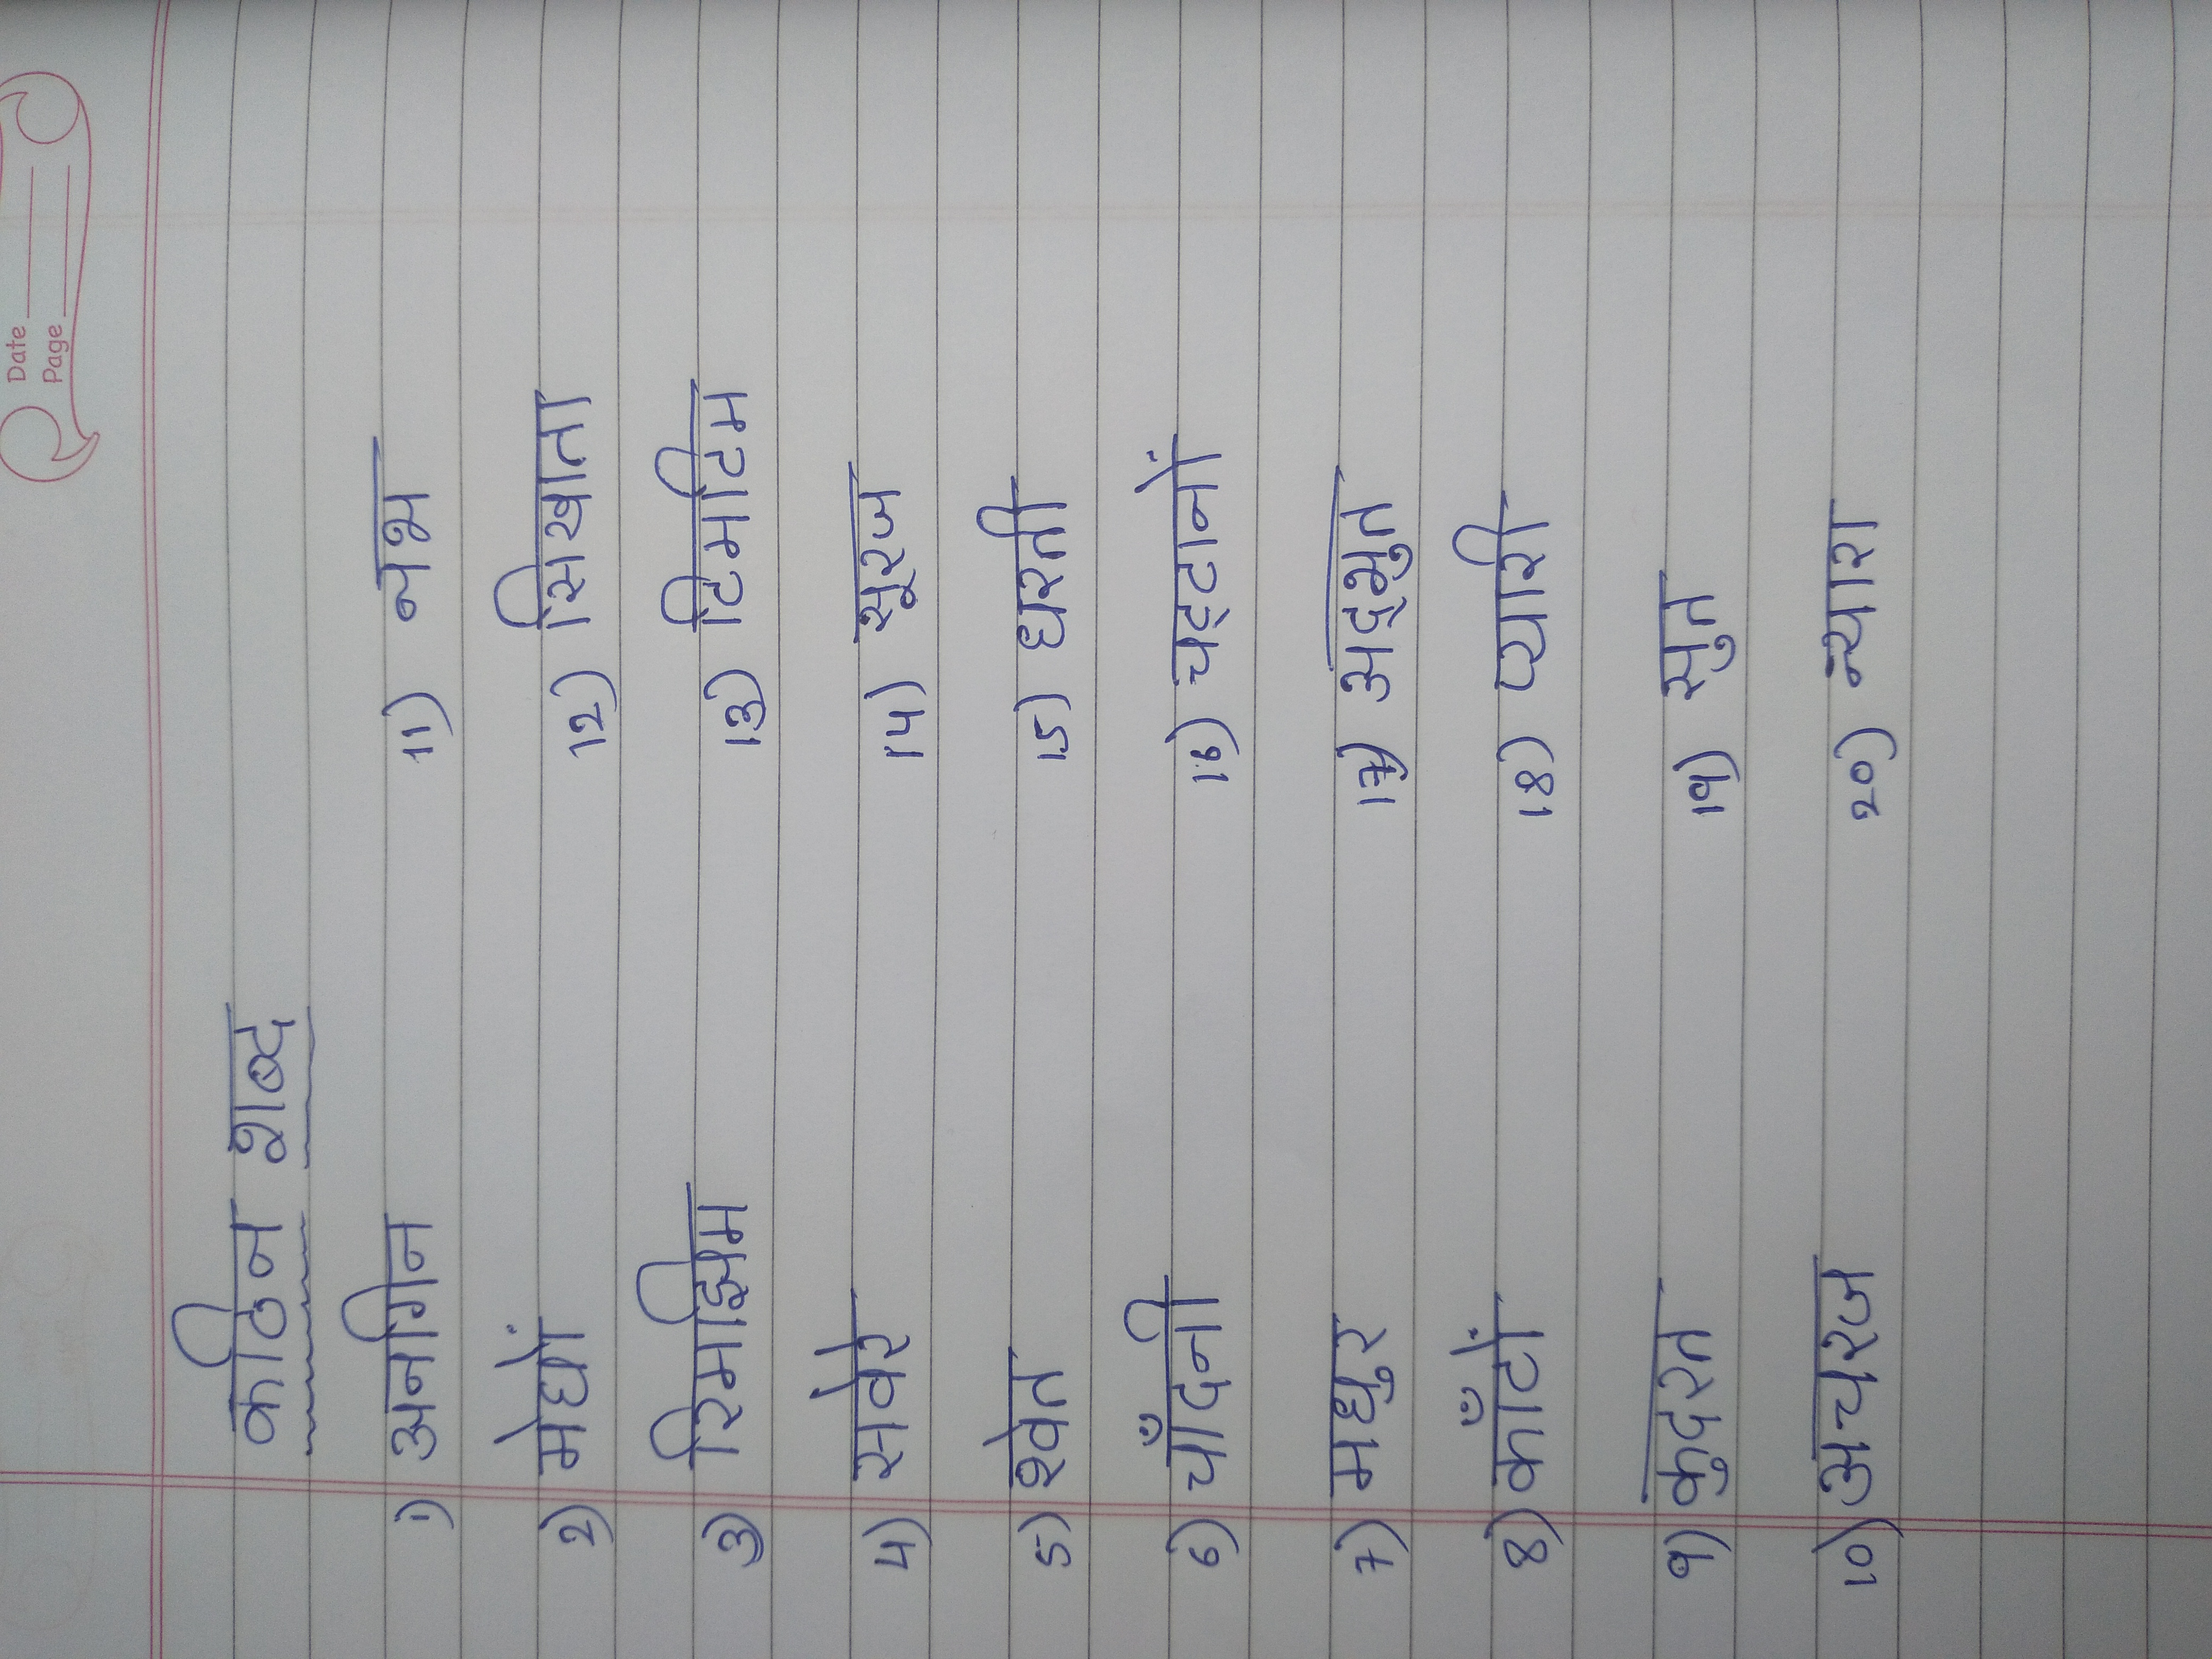 Date
Page
कठिन शब्द
1) अनगिन 11) नभ
2) मेघों 12) सिखाता
3) रिमझिम 13) टिमटिम
4) सवेरे 14) सूरज
5) श्वेत 15) धरती
6) चाँदनी 16) चट्टानों
7) मधुर 17) अद्भुत
8) काँटों 18) प्यारी
9) कुदरत 19) सुत
10) अचरज 20) न्यारा